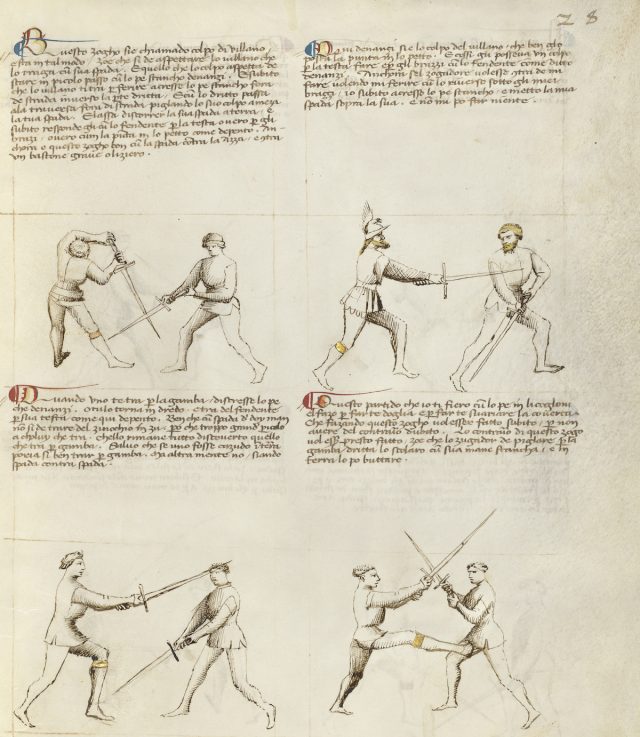 28
Questo zogho sie chiamado colpo di villano,
e sta in tal modo, zoe che si de aspettare lo villano che
lo traga cum sua spada. E quello che lo colpo aspetta de
stare in picolo passo cum lo pe stancho denanzi. E subito
che lo villano ti tra per ferire acresse lo pe stancho fora
de strada inverso la parte dritta. E cum lo dritto passa
ala traversa fora di strada pigliando lo suo colpo a meza
la tua spada. E lassa discorrer la sua spada a terra, e
subito responde gli cum lo fendente per la testa overo per gli
brazzi, overo cum la punta in lo petto come depento. An-
chora e questo zogho bon cum la spada contra la azza, e contra
un bastone grave o liziero.
Qui denanzi sie lo colpo del villano, che ben gl'o
posta la punta in lo petto. E cossi gli posseva un colpo
per la testa fare e per gli brazzi cum lo fendente come ditto
denanzi. Anchora sel zogadore volesse contra de mi
fare volendo mi ferire cum lo riverso sotto gli miei
brazzi, io subito acresco lo pe stancho, e metto la mia
spada sopra la sua. E non mi po far niente.
Quando uno te tra per la gamba, discresse lo pe
che denanzi. O tu lo torna in dredo, e tra del fendente
per sua testa come qui depento. Ben che cum spada di doy man
non si de trare del zinochio in zu, per che troppo grand pericolo
a choluy che tra. chello rimane tutto discoverto quello
che tra per gamba. Salvo che se uno fosse cazudo in terra
poria si ben trar per gamba. Ma altramente no, siando
spada contra spada.
Questo partido che io ti fiero cum lo pe in li coglioni
el fazo per farte doglia e per farte svariare la coverta.
Che fazando questo zogho vol essere fatto subito, per non
avere del contrario dubito. Lo contrario di questo zogo
vol esser presto fatto, zoe che lo zugador de pigliare per la
gamba dritta lo scolaro cum sua mane stancha, e in
terra lo po buttare.